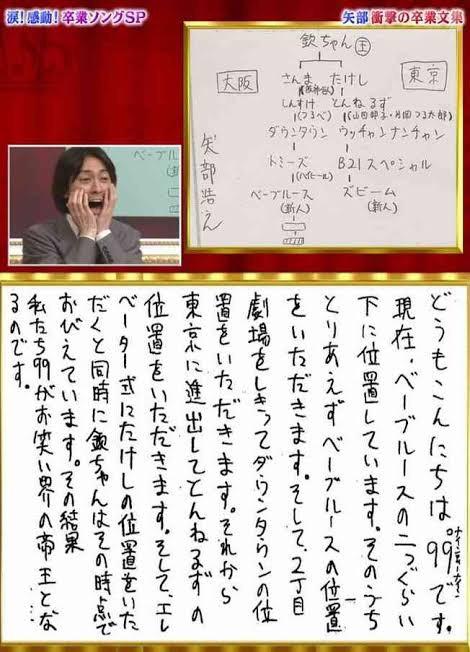 涙!感動!卒業ソングSP
矢部 衝撃の卒業文集
欽ちゃん 王
大阪
東京
さんま たけし
しんすけ とんねるず
(つるべ)
ダウンタウン ウッチャンナンチャン
トミーズ B21スペシャル
(ハイヒール)
ベーブルース ズビーム
(新人) (新人)
矢部浩之
ベーブル
(新
どうもこんにちは。99です。
ナインティナイン
現在、ベーブルースの二つぐらい
下に位置しています。そのうち
とりあえずベーブルースの位置
をいただきます。そして、2丁目
劇場をしきってダウンタウンの位
置をいただきます。それから
東京に進出してとんねるずの
位置をいただきます。そして、エレ
ベーター式にたけしの位置をいた
だくと同時に欽ちゃんはその時点で
おびえています。その結果
私たち99がお笑い界の帝王とな
るのです。